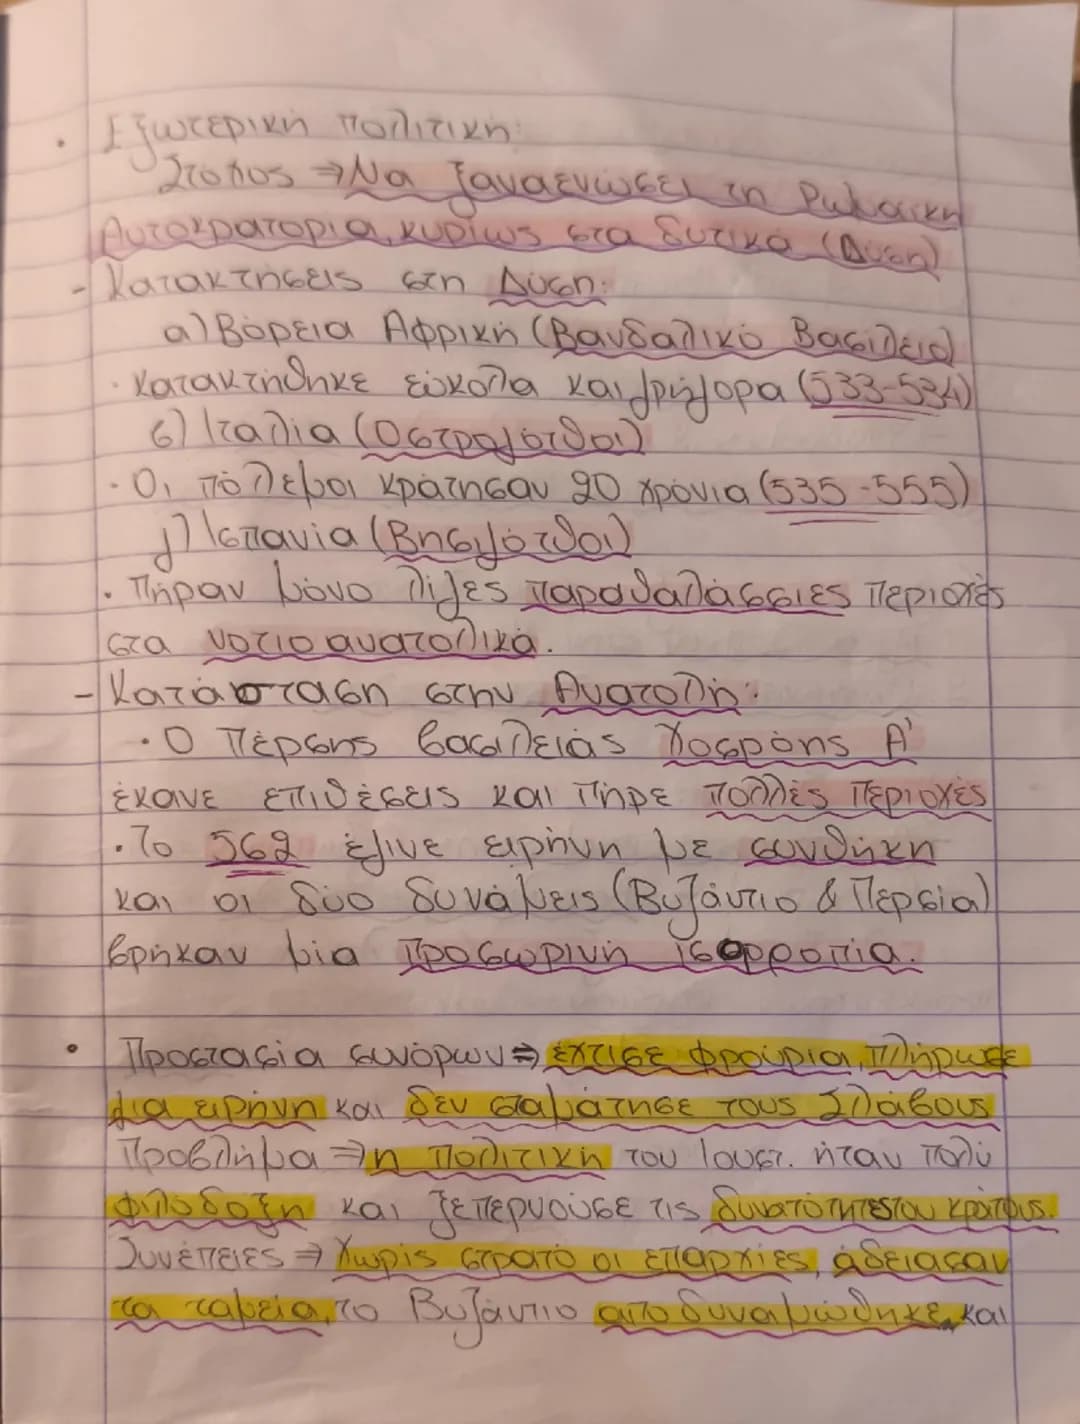 • Εξωτερική πολιτική:
Στόχος ⇒ Να ξαναενώσει τη Ρωμαϊκή
Αυτοκρατορία, κυρίως στα δυτικά (Δύση)
- Κατακτήσεις στη Δύση:
α) Βόρεια Αφρική (Βανδαλικό Βασίλειο)
· Κατακτήθηκε εύκολα και γρήγορα (533-534)
β) Ιταλία (Οστρογότθοι)
· Οι πόλεμοι κράτησαν 20 χρόνια (535-555)
γ) Ισπανία (Βησιγότθοι)
· Πήραν μόνο λίγες παραθαλάσσιες περιοχές
στα νοτιοανατολικά.
- Κατάσταση στην Ανατολή:
· Ο Πέρσης βασιλειάς Χοσρόης Α'
έκανε επιθέσεις και πήρε πολλές περιοχές
· Το 562 έγινε ειρήνη με συνθήκη
και οι δύο δυνάμεις (Βυζάντιο & Περσία)
βρήκαν μία προσωρινή ισορροπία.
• Προστασία συνόρων ⇒ έχτισε φρούρια, πλήρωσε
για ειρήνη και δεν σταμάτησε τους Σλάβους
Πρόβλημα ⇒ η πολιτική του Ιουστ. ήταν πολύ
φιλόδοξη και ξεπερνούσε τις δυνατότητες του κράτους.
Συνέπειες ⇒ Χωρίς στρατό οι επαρχίες, άδειασαν
τα ταμεία, το Βυζάντιο αποδυναμώθηκε και